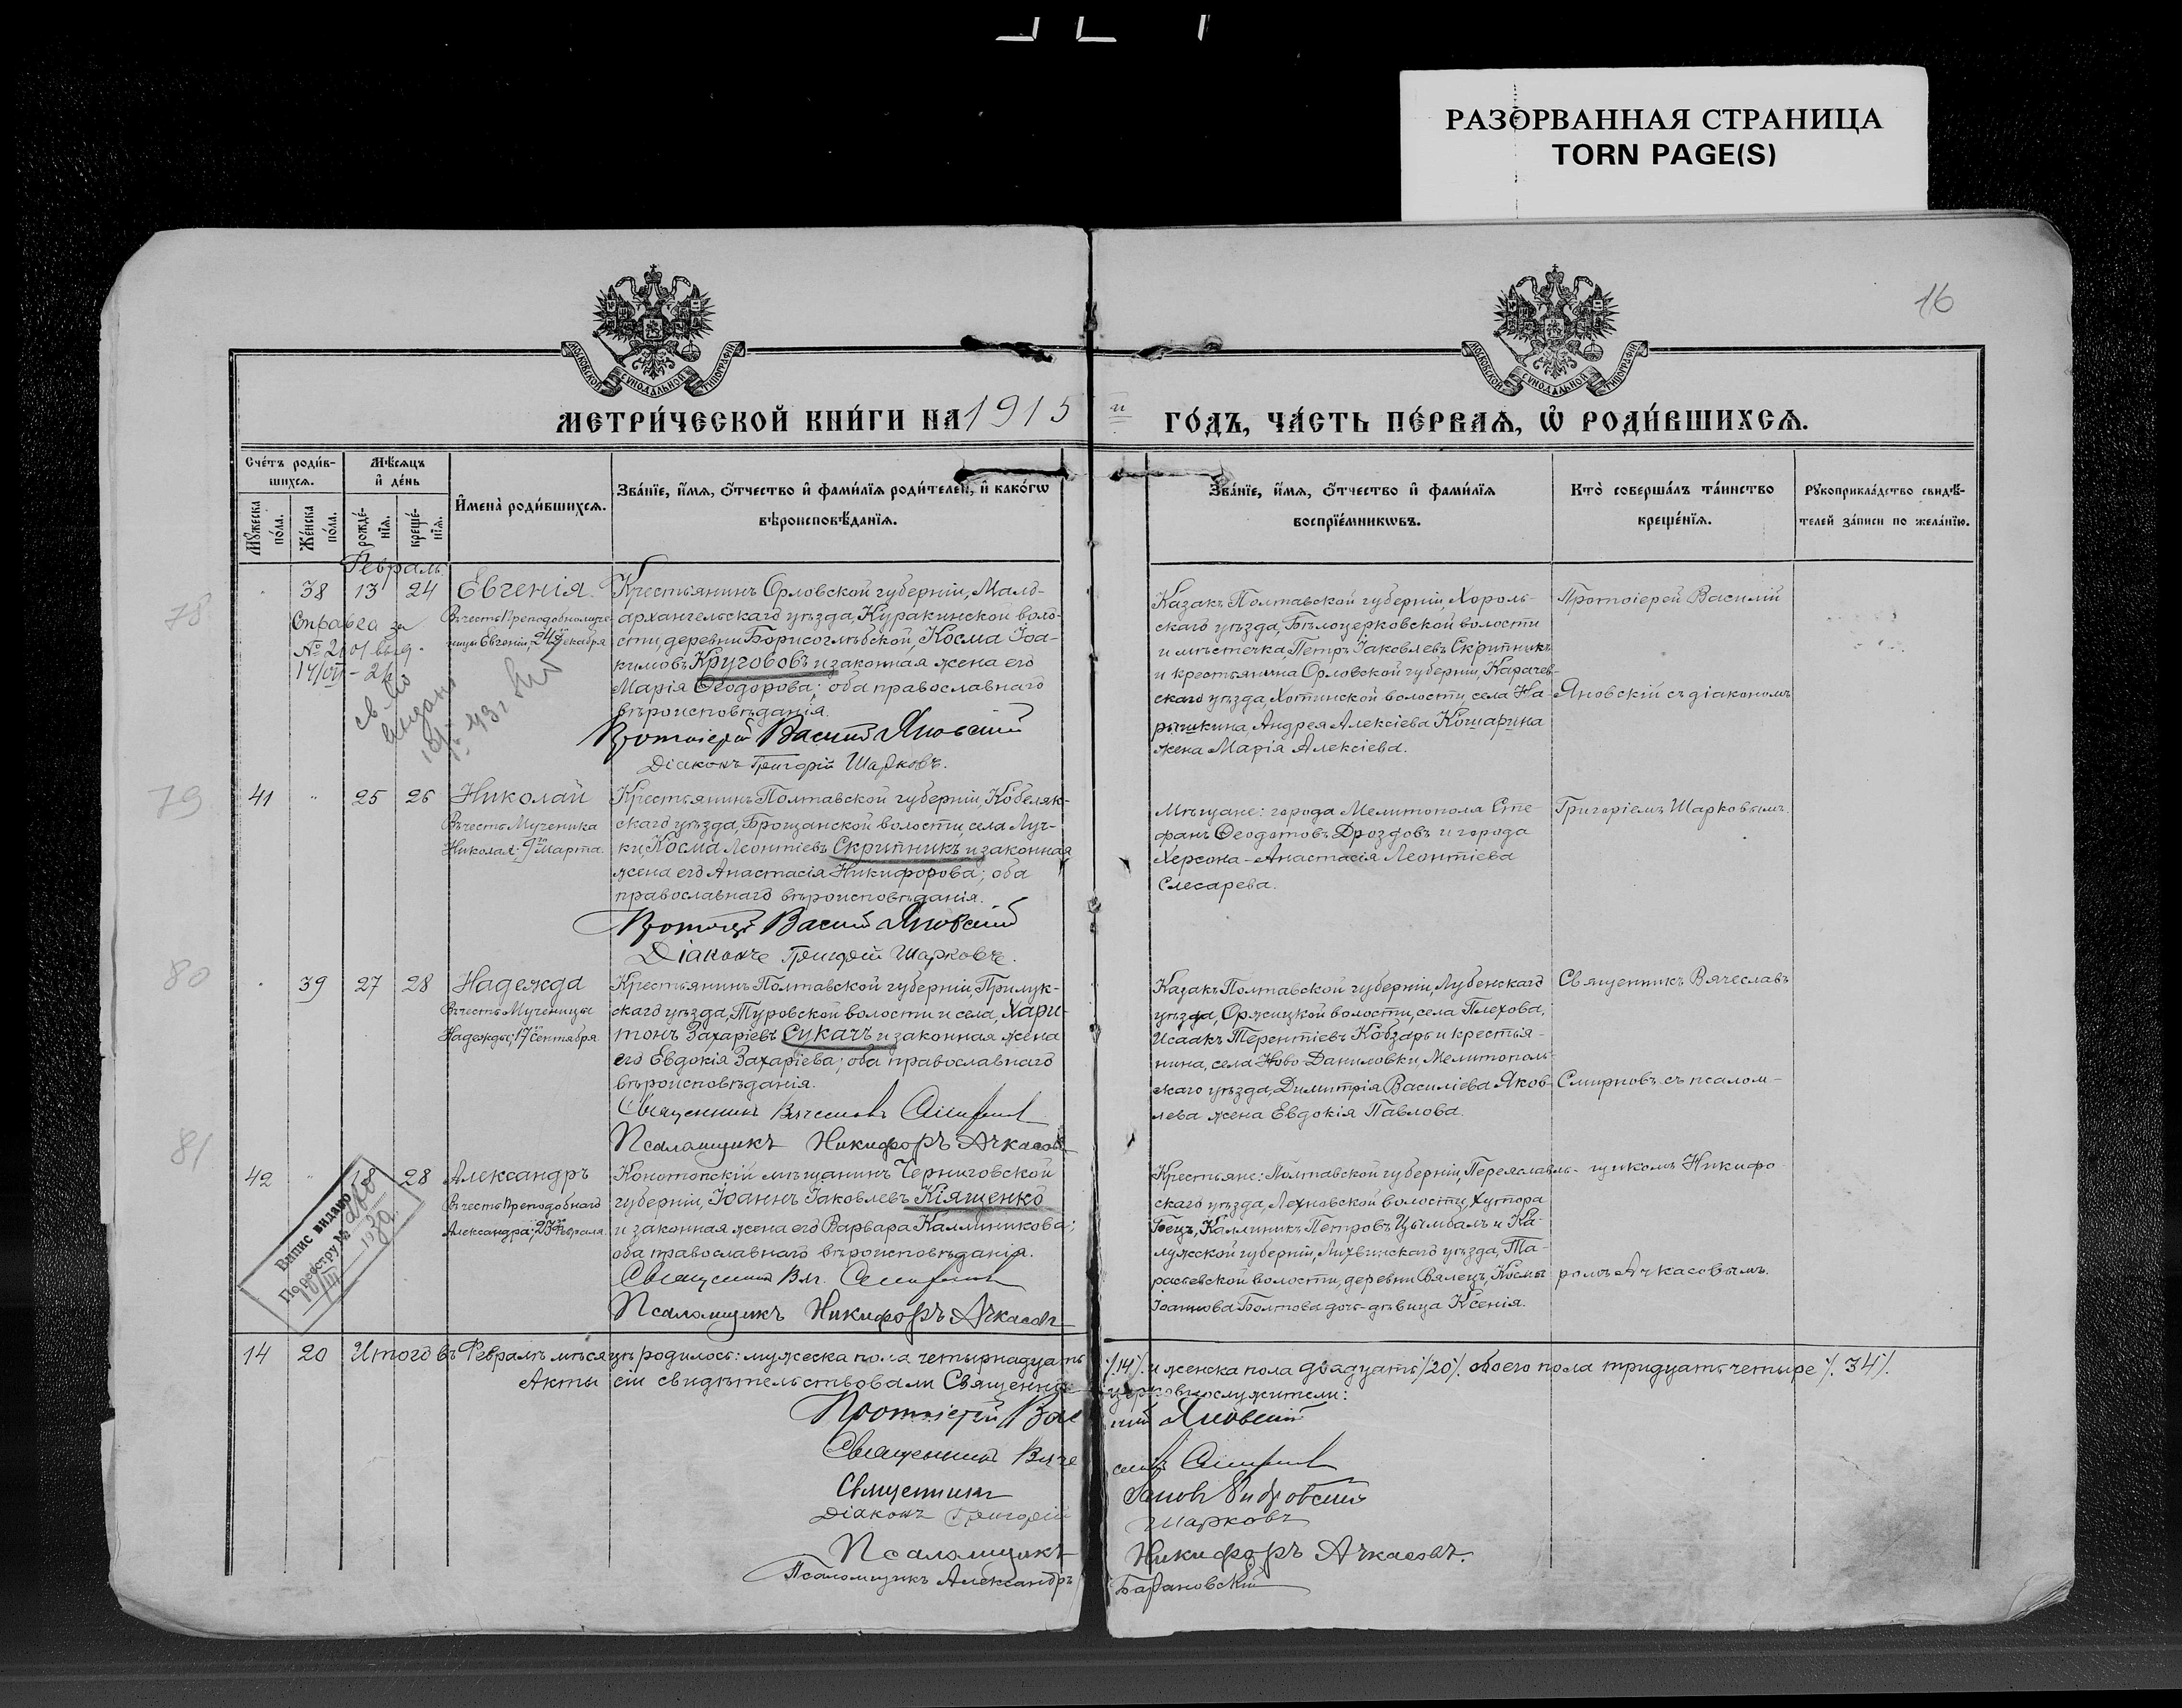 РАЗОРВАННАЯ СТРАНИЦА
TORN PAGE(S)
16
МОСКОВСКОЙ СѴНОДАЛЬНОЙ ТИПОГРАФІИ
МОСКОВСКОЙ СѴНОДАЛЬНОЙ ТИПОГРАФІИ
МЕТРИ́ЧЕСКОЙ КНИ́ГИ НА 1915 й ГО́ДЪ, ЧА́СТЬ ПЕ́РВАѦ, Ѡ҆ РОДИ́ВШИХСѦ.
Счéтъ роди́в-
шихсѧ.
Мѣ́сѧцъ
и҆ де́нь
Мꙋ́жеска
по́ла.
Же́нска
по́ла.
рожде́-
нїѧ.
креще́-
нїѧ.
И҆мена̀ роди́вшихсѧ.
Зва́нїе, и҆́мѧ, ѻ҆́тчество и҆ фами́лїѧ роди́телей, и҆ како́гѡ
вѣроисповѣ́данїѧ.
Зва́нїе, и҆́мѧ, ѻ҆́тчество и҆ фами́лїѧ
воспрїе́мникѡвъ.
Кто̀ соверша́лъ та́инство
креще́нїѧ.
Рꙋкоприкла́дство свидѣ́-
телей за́писи по жела́нїю.
Февраль.
78
38 13 24 Евгенія.
Въ честь Преподобному-
ницы Евгеніи, 24го Декабря
Справка за
№ 2101 выд.
14/VII - 2
св-во
выдано
Крестьянинъ Орловской губерніи, Мало-
архангельскаго уѣзда, Куракинской воло-
сти, деревни Борисоглѣбской, Косма Іоа-
кимовъ Кругововъ и законная жена его
Марія Ѳеодорова; оба православнаго
вѣроисповѣданія.
Протоіерей Василій Яновскій
Діаконъ Григорій Шарковъ.
Казакъ Полтавской губерніи, Хороль-
скаго уѣзда, Бѣлоцерковской волости
и мѣстечка, Петръ Іаковлевъ Скрипникъ
и крестьянина Орловской губерніи, Карачев-
скаго уѣзда, Хотинской волости, села На-
рышкина, Андрея Алексіева Кошарина
жена Марія Алексіева.
Протоіерей Василій
Яновскій съ діакономъ
79
41 " 25 26 Николай
Въ честь Мученика
Николая; 9го Марта.
Крестьянинъ Полтавской губерніи, Кобеляк-
скаго уѣзда, Брощанской волости, села Луч-
ки, Косма Леонтіевъ Скрипникъ и законная
жена его Анастасія Никифорова; оба
православнаго вѣроисповѣданія.
Протоіерей Василій Яновскій
Діаконъ Григорій Шарковъ.
Мѣщане: города Мелитополя Сте-
фанъ Ѳеодотовъ Дроздовъ и города
Херсона - Анастасія Леонтіева
Слесарева.
Григоріемъ Шарковымъ.
80
39 27 28 Надежда
Въ честь Мученицы
Надежды; 17го Сентября.
Крестьянинъ Полтавской губерніи, Прилук-
скаго уѣзда, Туровской волости и села, Хари-
тонъ Захаріевъ Сукачъ и законная жена
его Евдокія Захаріева; оба православнаго
вѣроисповѣданія.
Священникъ Вячеславъ Смирновъ
Псаломщикъ Никифоръ Ачкасовъ
Казакъ Полтавской губерніи, Лубенскаго
уѣзда, Оржицкой волости, села Плехова,
Исаакъ Терентіевъ Кобзарь и крестья-
нина, села Ново-Даниловки, Мелитополь-
скаго уѣзда, Димитрія Василіева Яков-
лева жена Евдокія Павлова.
Священникъ Вячеславъ
Смирновъ съ псалом-
81
42 " 28 Александръ
Въ честь Преподобнаго
Александра; 23го Февраля.
Випис видано
По реєстру №
10/III 1930
Конотопскій мѣщанинъ Черниговской
губерніи, Іоаннъ Іаковлевъ Кіященко
и законная жена его Варвара Каллиникова;
оба православнаго вѣроисповѣданія.
Священникъ Вяч. Смирновъ
Псаломщикъ Никифоръ Ачкасовъ
Крестьяне: Полтавской губерніи, Переяславль-
скаго уѣзда, Лехновской волости, хутора
Каллиникъ Петровъ Цымбалъ и Ка-
лужской губерніи, Лихвинскаго уѣзда, Та-
расьевской волости, деревни Вялецъ, Космы
Іоаннова Болтова дочь-дѣвица Ксенія.
щикомъ Никифо-
ромъ Ачкасовымъ.
14 20 Итого въ Февралѣ мѣсяцѣ родилось: мужеска пола четырнадцать /14/. и женска пола двадцать /20/. обоего пола тридцать четыре /34/.
Акты сіи свидѣтельствовали Священно-церковнослужители:
Протоіерей Василій Яновскій
Священникъ Вячеславъ Смирновъ
Священникъ
Діаконъ Григорій Шарковъ
Псаломщикъ Никифоръ Ачкасовъ.
Псаломщикъ Александръ Барановскій